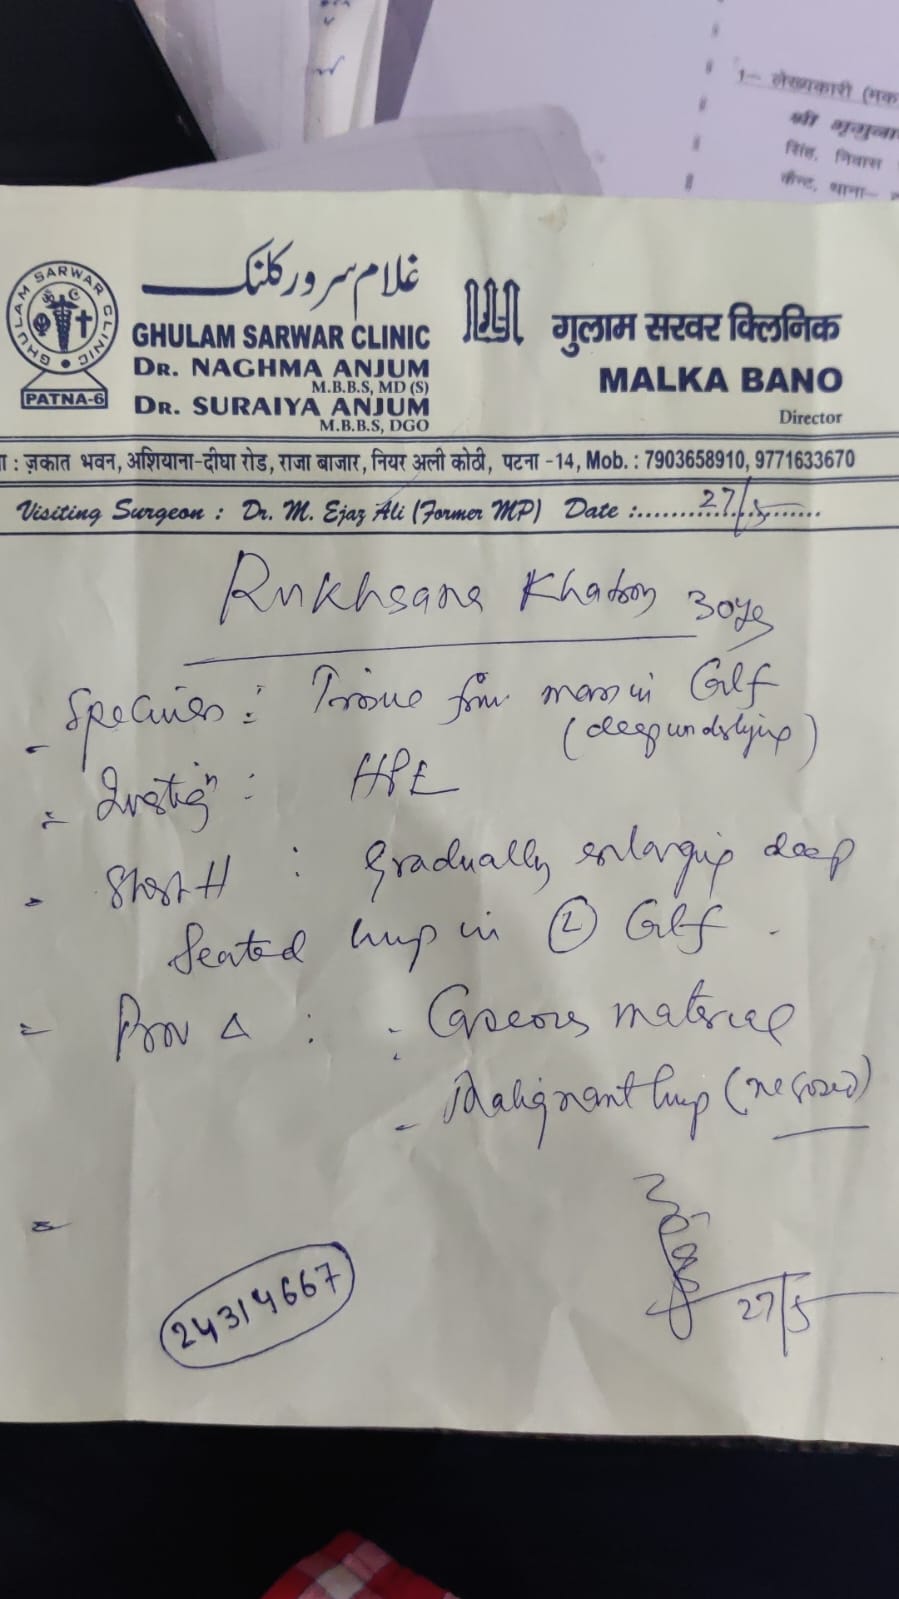 1- लेख्यकारी (मक
श्री भृगुना
सिंह, निवास
कैन्ट, थाना-
GHULAM SARWAR CLINIC
PATNA-6
غلام سرور کلنک
GHULAM SARWAR CLINIC
DR. NAGHMA ANJUM
M.B.B.S, MD (S)
DR. SURAIYA ANJUM
M.B.B.S, DGO
गुलाम सरवर क्लिनिक
MALKA BANO
Director
ा : ज़कात भवन, अशियाना-दीघा रोड, राजा बाजार, नियर अली कोठी, पटना -14, Mob. : 7903658910, 9771633670
Visiting Surgeon : Dr. M. Ejaz Ali (Former MP) Date :.....27/5.....
Rukhsana Khatoon 30ys
- Specimen : Tissue from mass in Calf
(deep underlying)
- Investign : HPE
- Short H : Gradually enlarging deep
Seated lump in (L) Calf .
- Prov Δ : - Caseous material
- Malignant lump
27/5
24314667